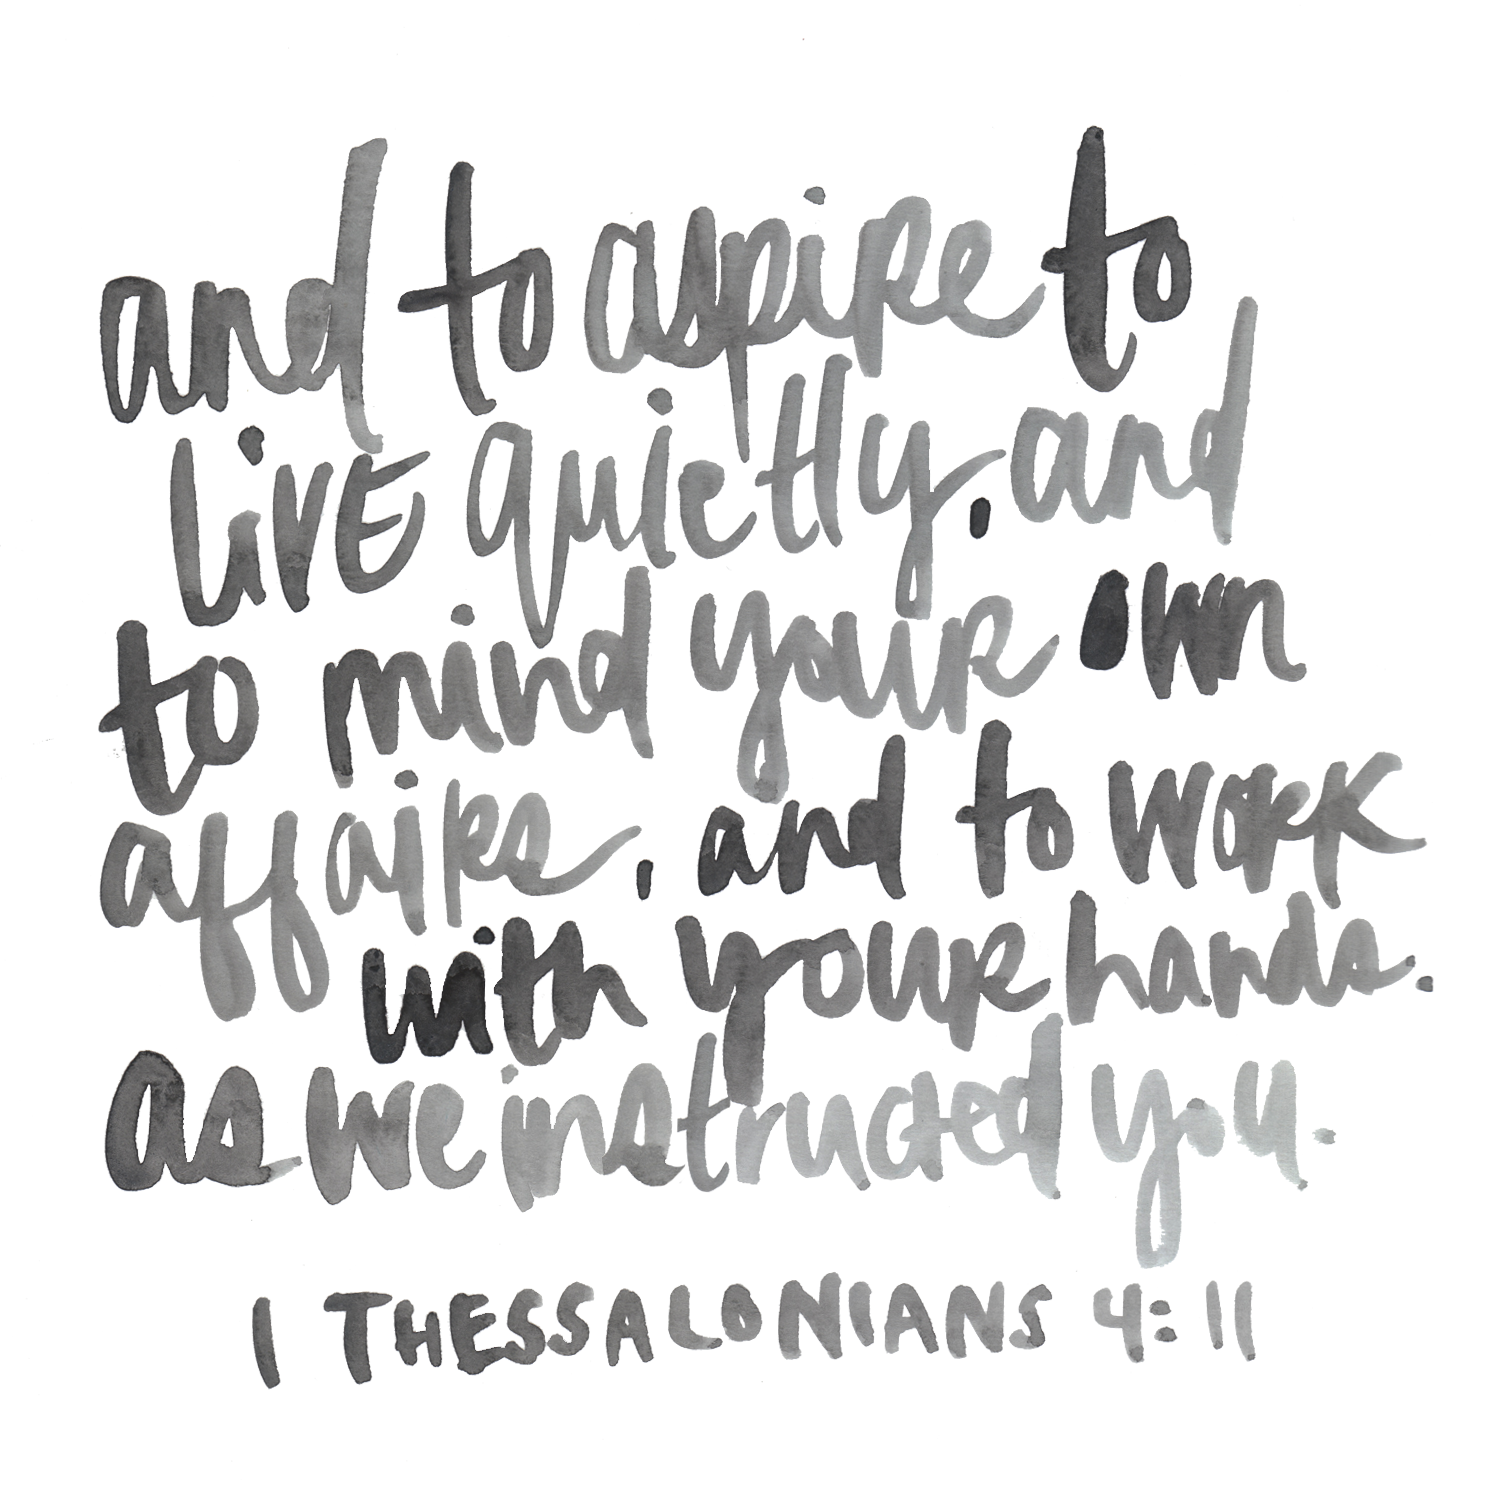 and to aspire to
live quietly, and
to mind your own
affairs, and to work
with your hands.
as we instructed you.
1 THESSALONIANS 4:11